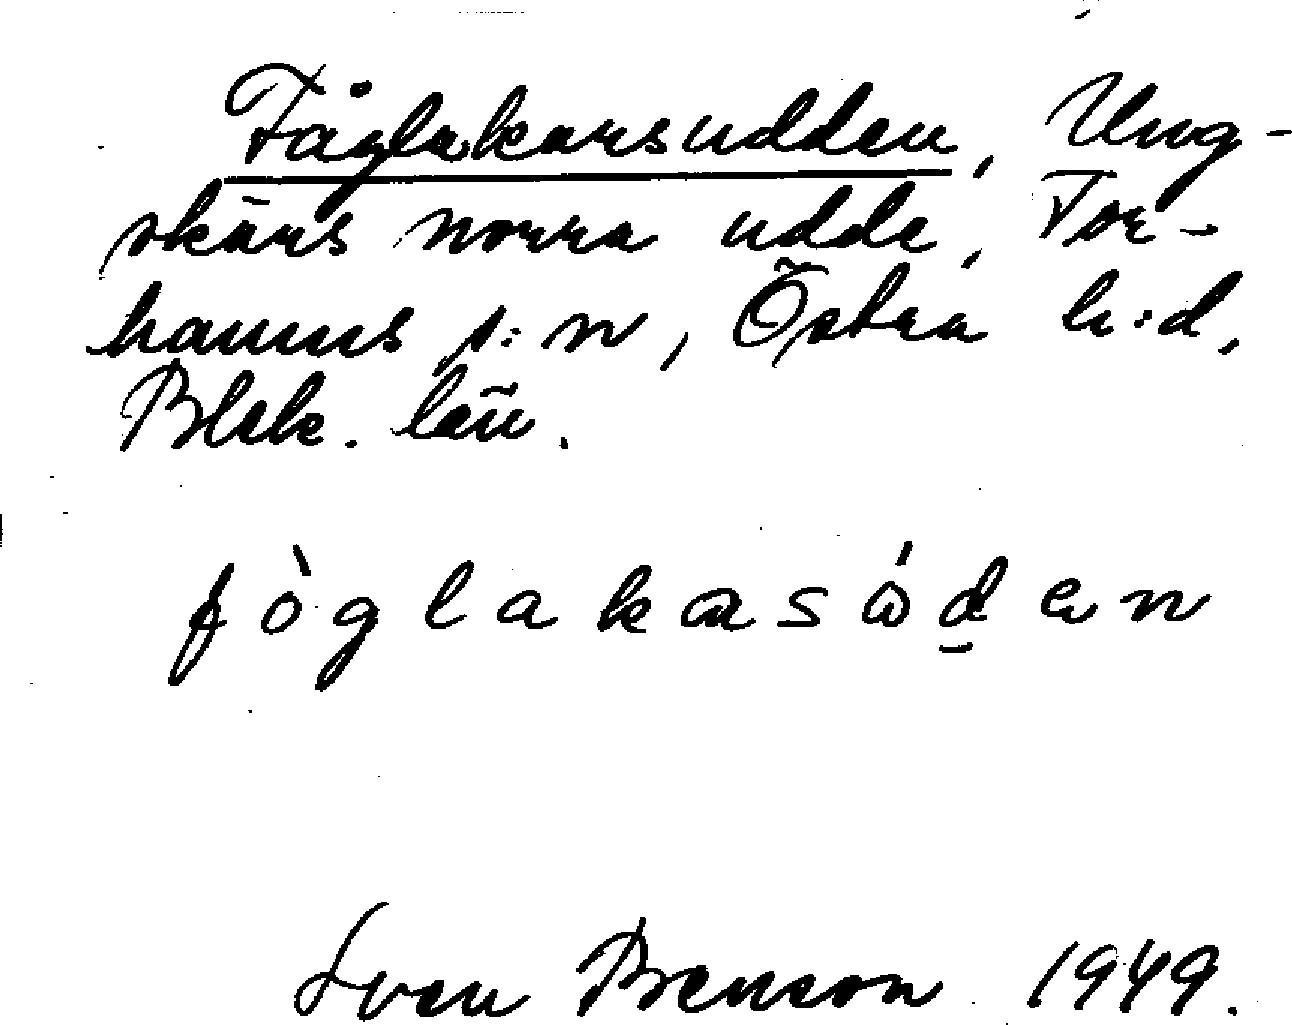 Fåglakarsudden, Ung-
skärs norra udde, Tor-
hamns s:n, Östra h:d,
Blek. län.
fòglakasóden
Sven Benson 1949.